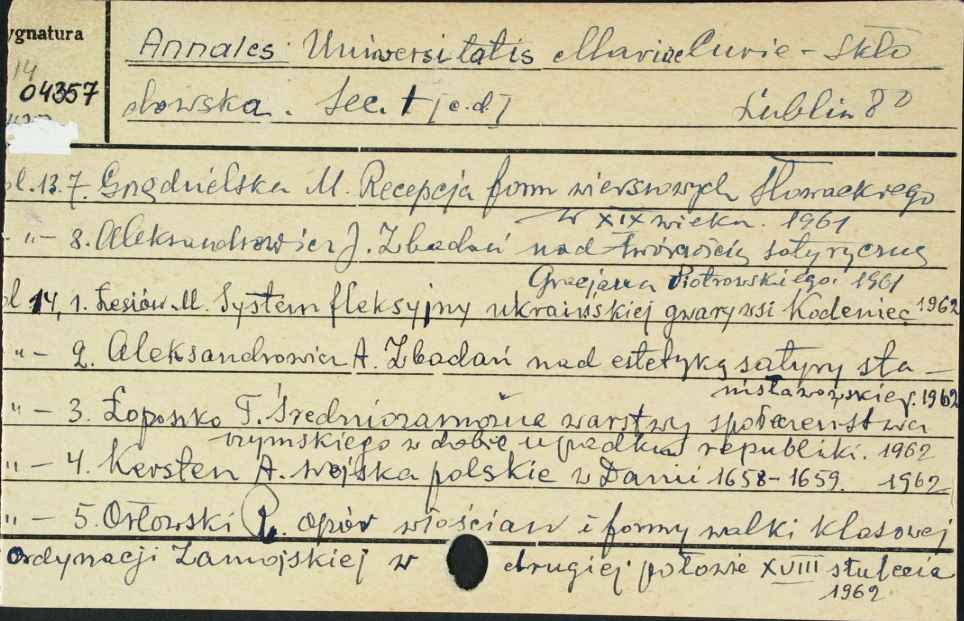 ygnatura
14
04357
Annales Universitatis Mariae Curie - Skło
dowska. Sec. 1 [c.d.] Lublin 8°
ol. 13. 7. Gnędzielska M. Recepcja form wierszowych Słowackiego
w XIX wieku. 1961
- „ - 8. Aleksandrowicz J. Z badań nad twórczością satyryczną
Gracjana Piotrowskiego. 1961
ol 14, 1. Łesiów M. System fleksyjny ukraińskiej gwary wsi Kodeniec 1962
„ - 2. Aleksandrowicz A. Z badań nad estetyką satyry sta -
nisławowskiej. 1962
„ - 3. Łoposzko T. Średniozamożne warstwy społeczeństwa
rzymskiego w dobie upadku republiki. 1962
„ - 4. Kersten A. Wojska polskie w Danii 1658 - 1659. 1962
„ - 5. Orłowski R. Opór włościan i formy walki klasowej
Ordynacji Zamojskiej w drugiej połowie XVIII stulecia
1962